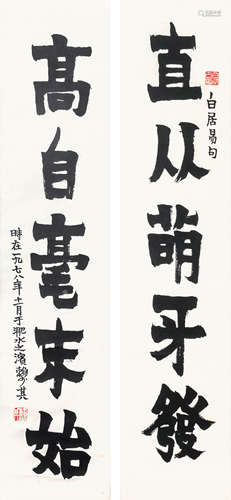 直从萌牙發
白居易句
高自毫末始
時在一九七八年十一月于淝水之濱賴少其